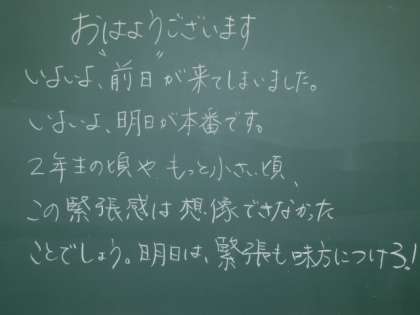 おはようございます
いよいよ、"前日"が来てしまいました。
いよいよ、明日が本番です。
2年生の頃や もっと小さい頃、
この緊張感は想像できなかった
ことでしょう。明日は、緊張も味方につけろ!